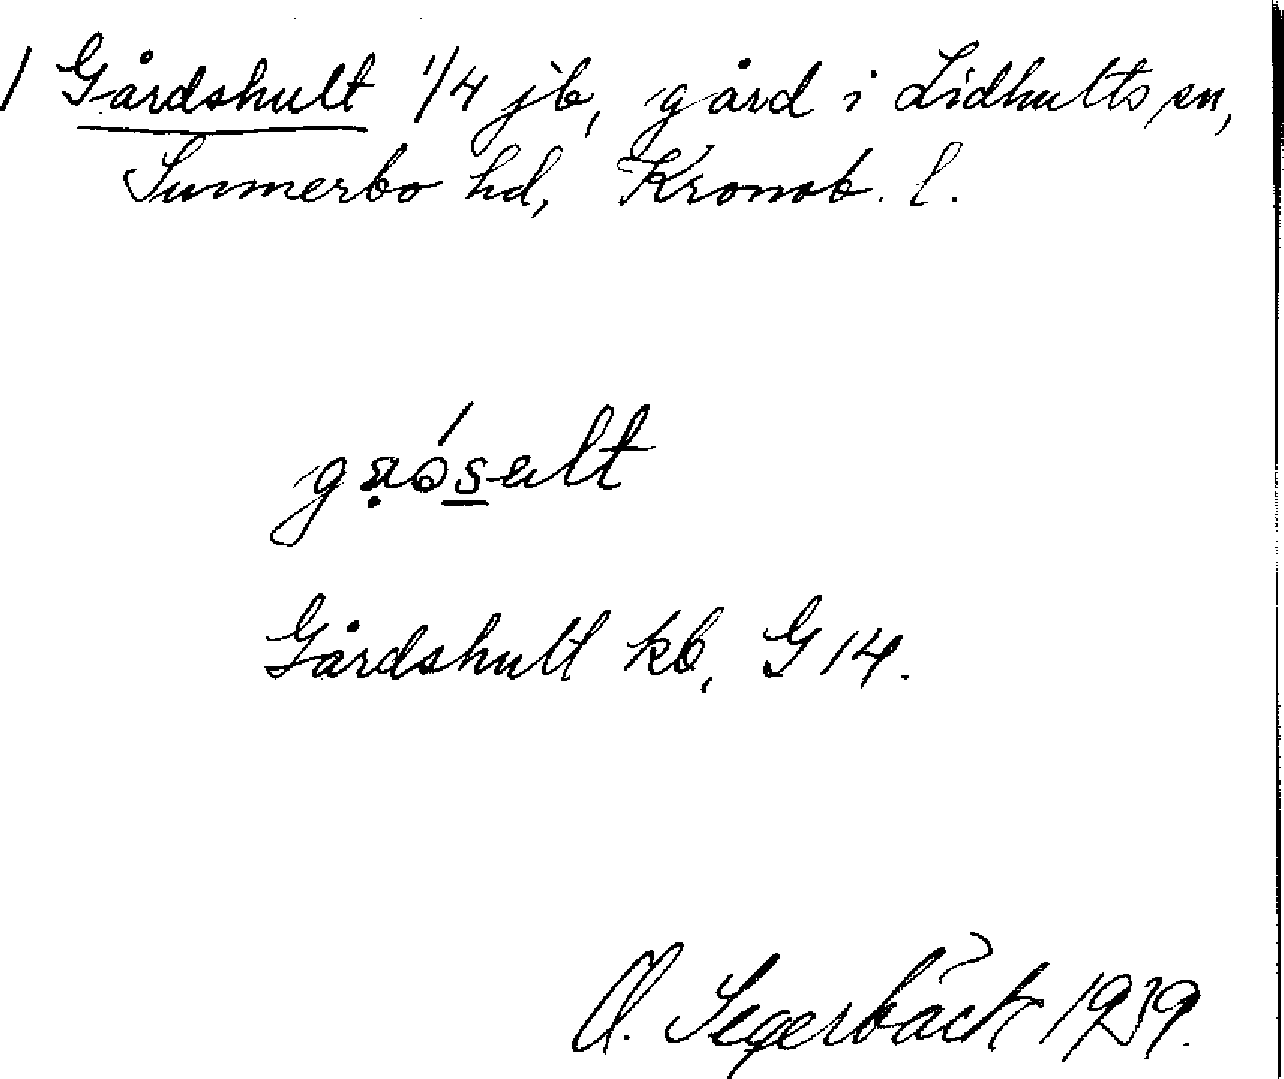 / Gårdshult 1/4 jb, gård i Lidhults sn,
Sunnerbo hd, Kronob. l.
Gårdshult kb, G 14.
Segerbäck 1939.